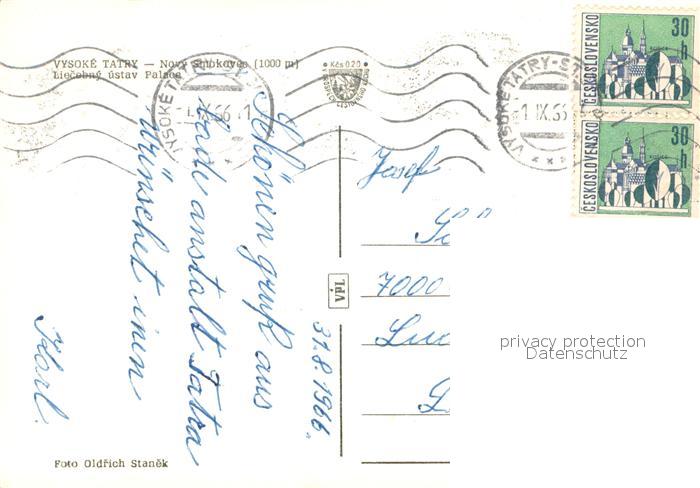 VYSOKÉ TATRY — Nový Smokovec (1000 m)
Liečebný ústav Palace
Kčs 0.20
VYSOKÉ TATRY
-1.IX.66-1
VYSOKÉ TATRY-ST
-1.IX.66
ČESKOSLOVENSKO
30 h
ČESKOSLOVENSKO
30 h
Schönen gruß aus
Bade anstalt Tatra
wünschet inen
Karl.
31.8.1966.
VPL
Josef
7000
Lud
privacy protection
Datenschutz
Foto Oldřich Staněk